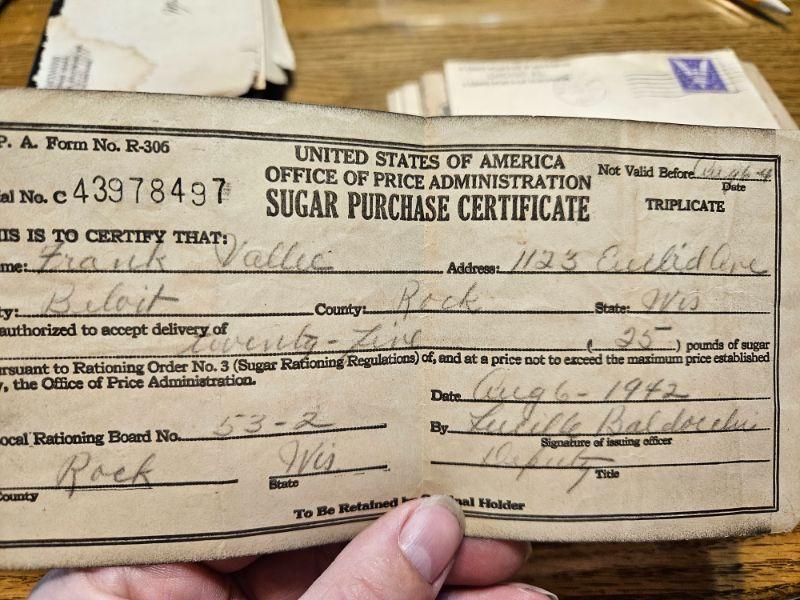 P. A. Form No. R-306
UNITED STATES OF AMERICA
OFFICE OF PRICE ADMINISTRATION
SUGAR PURCHASE CERTIFICATE
Not Valid Before Aug 6-4
Date
TRIPLICATE
ial No. C 43978497
HIS IS TO CERTIFY THAT:
me: Frank Vallee Address: 1123 Euclid Ave
ty: Beloit County: Rock State: Wis
authorized to accept delivery of twenty-five ( 25 ) pounds of sugar
ursuant to Rationing Order No. 3 (Sugar Rationing Regulations) of, and at a price not to exceed the maximum price established
y, the Office of Price Administration.
Date Aug 6- 1942
ocal Rationing Board No. 53-2 By Lucille Baldocchi
Signature of issuing officer
Rock Wis Deputy
County State Title
To Be Retained by nal Holder